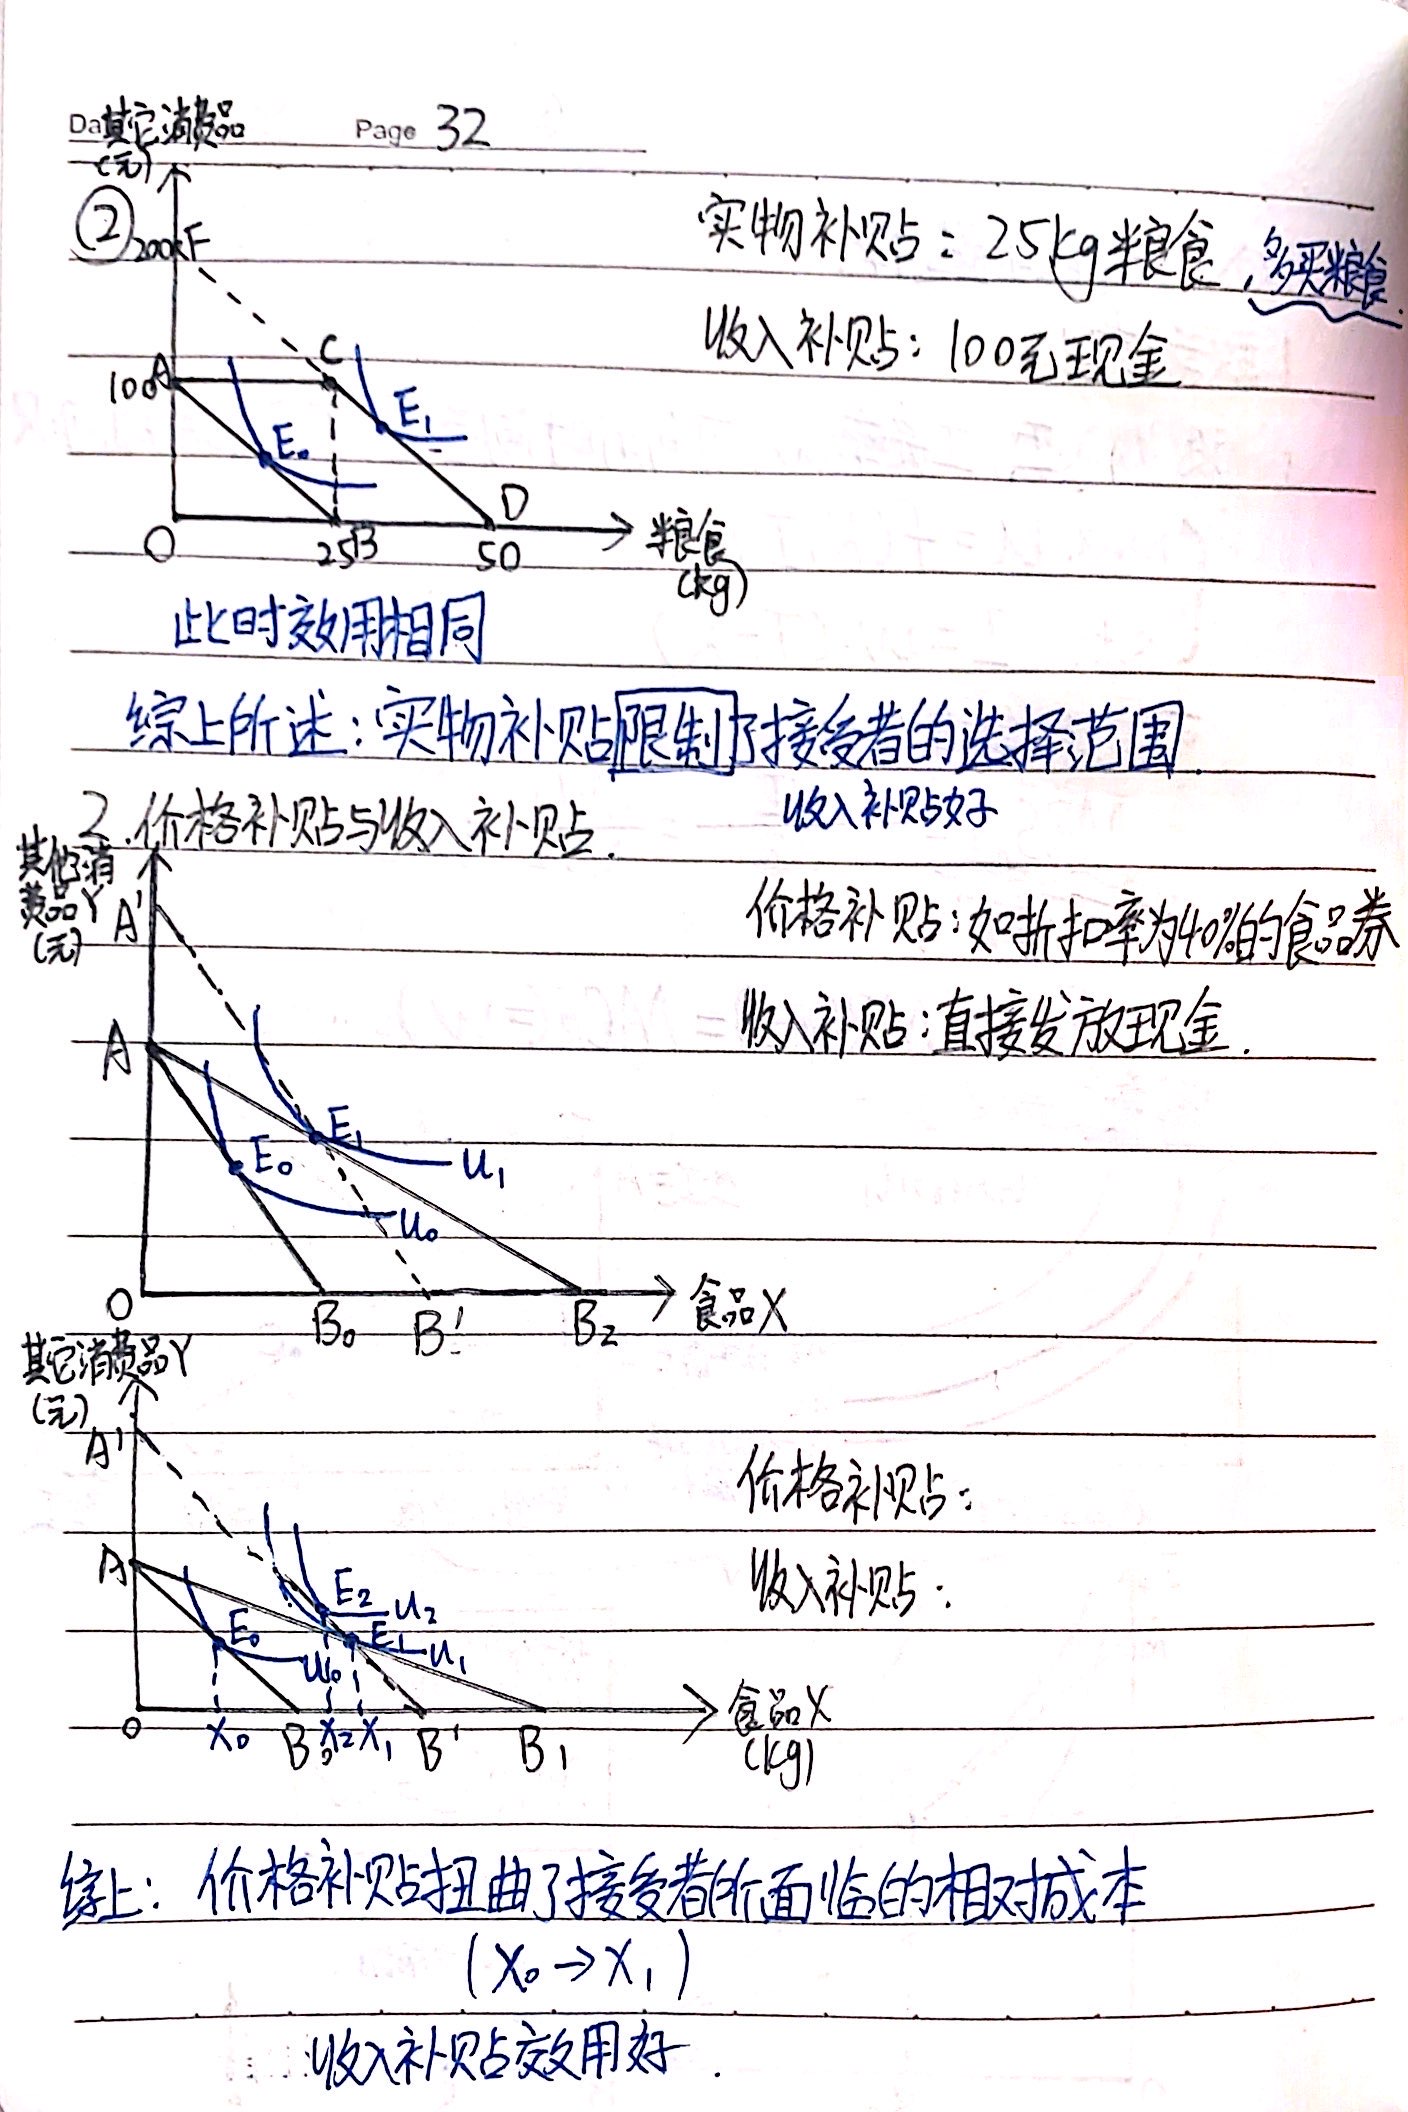 Da其它消费品 Page 32
(元)
② 200 F
实物补贴：25kg粮食，多买粮食.
收入补贴：100元现金
100 A C E₁
E₀
D
O 25B 50 粮食
(kg)
此时效用相同
综上所述：实物补贴限制了接受者的选择范围.
收入补贴好
2.价格补贴与收入补贴.
其他消
费品Y
(元)
A'
价格补贴：如折扣率为40%的食品券
收入补贴：直接发放现金.
A
E₁
E₀ u₁
u₀
O B₀ B' B₂ 食品X
其它消费品Y
(元)
A'
价格补贴：
收入补贴：
A E₂ u₂
E₀ E₁ u₁
u₀
O X₀ B₀ X₂ X₁ B' B₁ 食品X
(kg)
综上：价格补贴扭曲了接受者所面临的相对成本
(X₀→X₁)
收入补贴效用好.